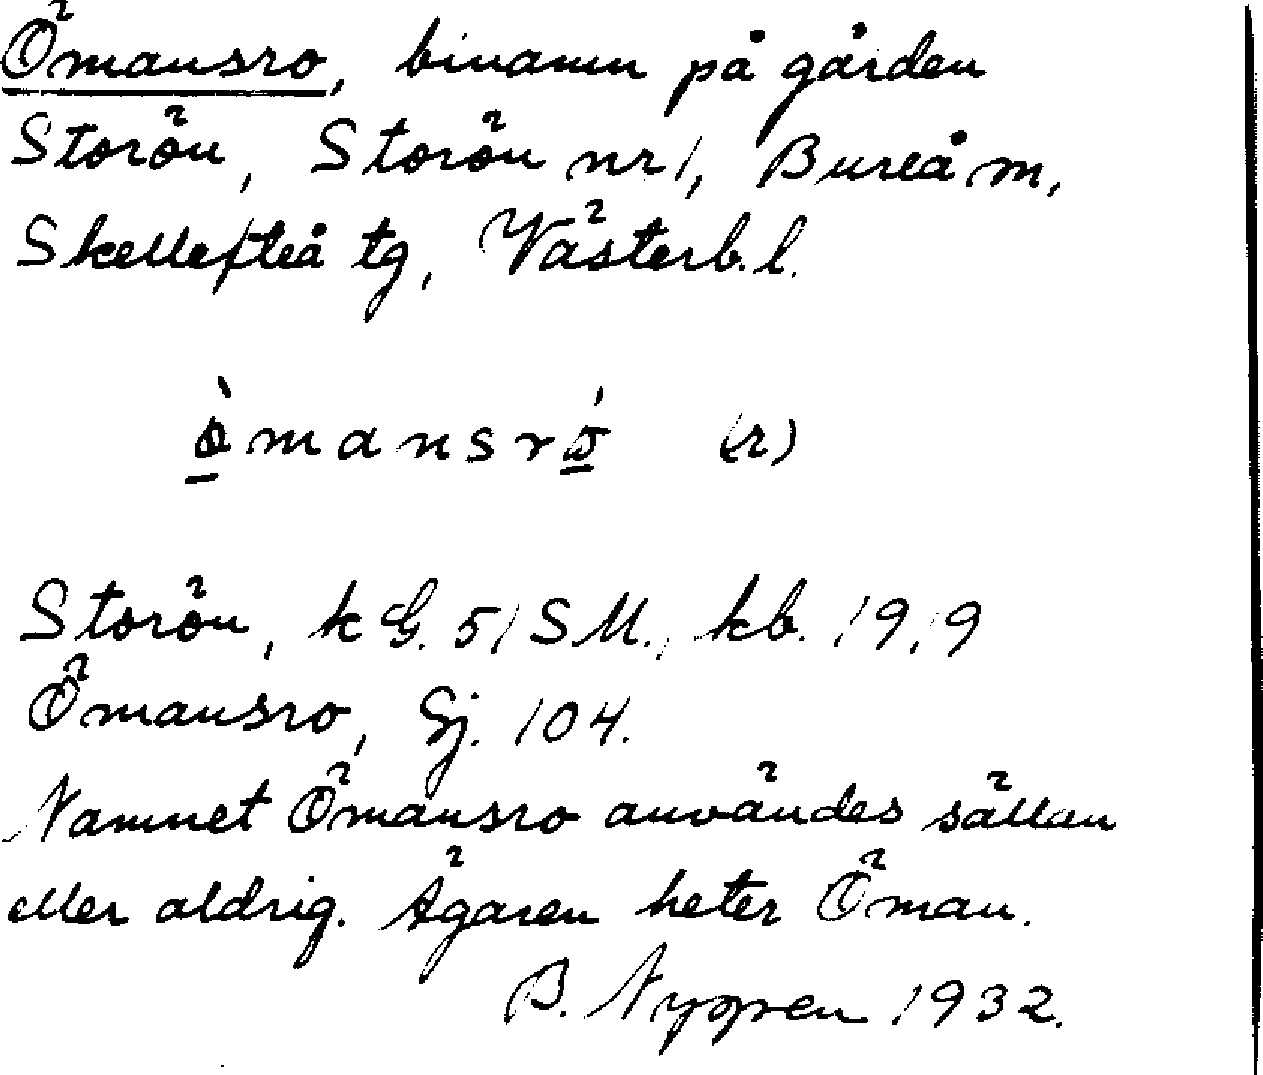 Ömansro, binamn på gården
Storön, Storön nr 1, Bureå m,
Skellefteå tg, Västerb. l.
ò̱mansró̱ (r)
Storön, k G. 51 SM., kb. 1919
Ömansro, Gj. 104.
Namnet Ömansro användes sällan
eller aldrig. Ägaren heter Öman.
B. Nygren 1932.